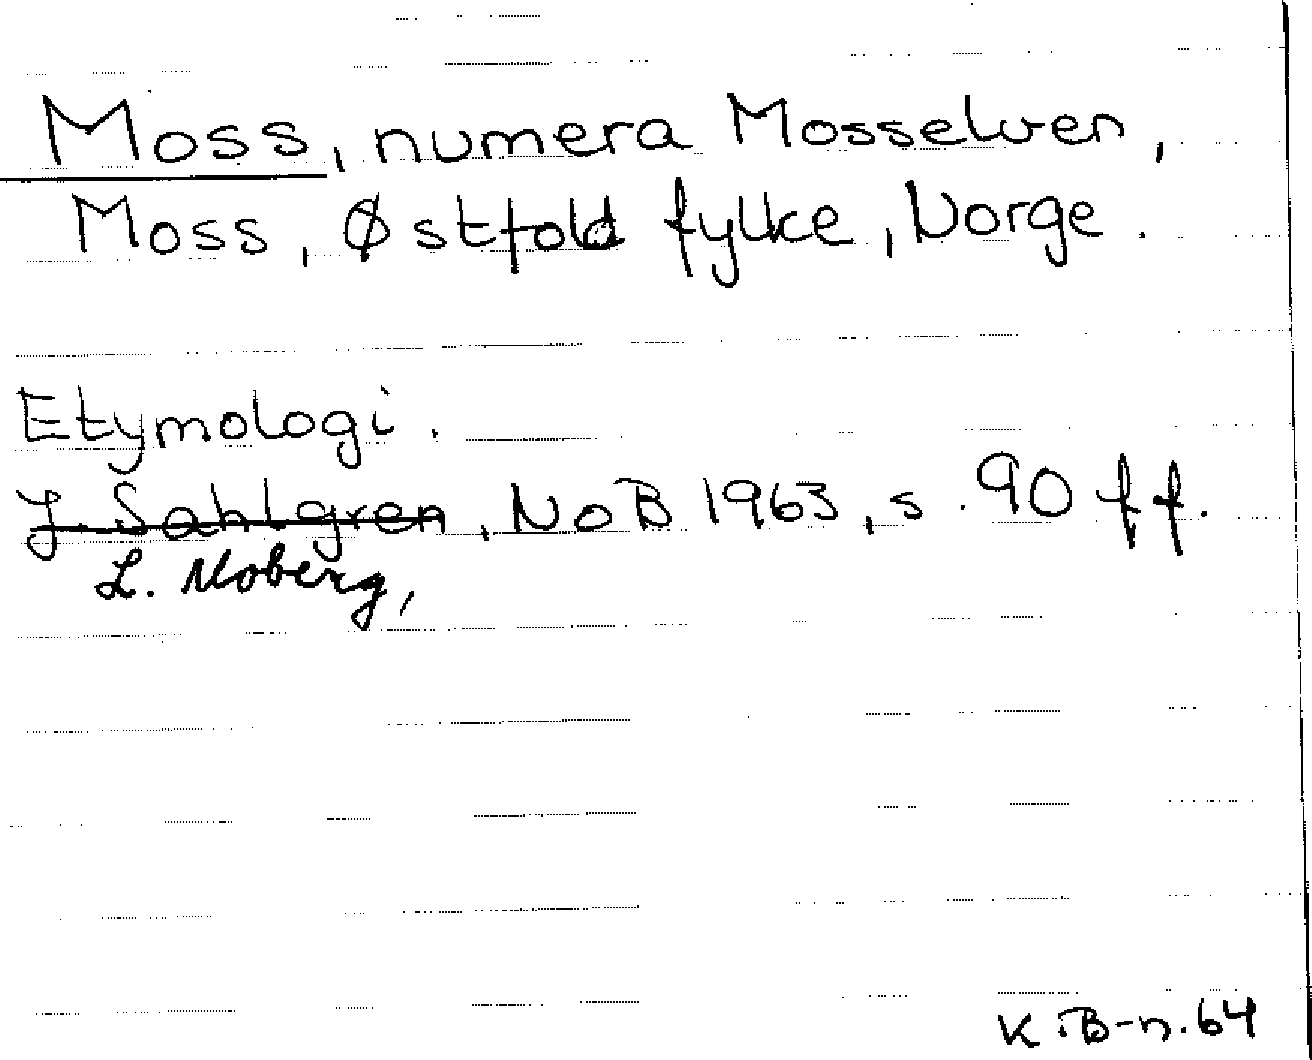 Moss, numera Mosselven,
Moss, Østfold fylke, Norge.
Etymologi.
J. Sahlgren, NoB 1963, s. 90 ff.
L. Moberg,
K. B-n. 64